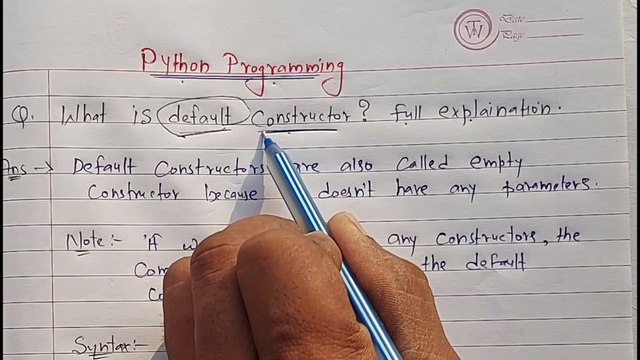 Date
Page
Python Programming
Q. What is default Constructor? full explaination.
Ans → Default Constructors are also called empty
Constructor because doesn't have any parameters.
Note:- 'If any constructors, the
the default
Syntax: